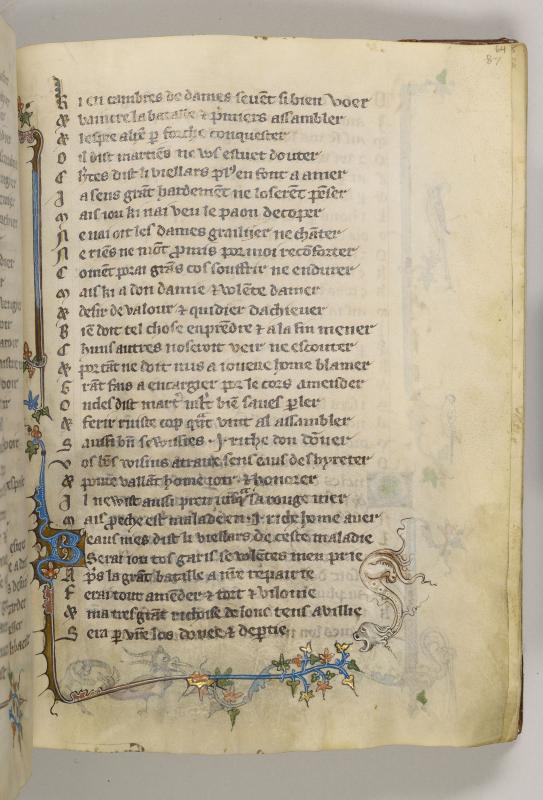 64
87
R i en cambres de dames sevēt si bien voer
& vaintre la bataille & p̄miers assambler
& lespee a lieē p forche conquester
O il dist marciēs ne vos estuet douter
C htes dist li viellars en font a amer
J a sens grāt hardemēt ne loserēt pēser
M ais iou ki nai veu le paon decoper
N e vai oit les dames gaillier ne chāter
N e riēs ne mōt p̄mis por moi recōforter
C omēt porai grās cos souffrir ne endurer
M ais ki a don damie & volēte damer
& desir de valour & quidier dachiever
B iē doit tel chose enprēdre & a la fin mener
C huns autres noseroit veir ne escouter
& portāt ne doit nus a iouene home blamer
G rāt fais a encargier por le cors amender
O ncles dist biē saves pler
& ferir ruiste cop qāt vint al assambler
S aussi bn̄ se wissies .i. riche don dōner
V os bōs wisins atraire sens eaus deshyreter
& povre vaillāt home ioir & honorer
J l newist aussi preu la rouge mer
M ais pechē est malade en .i. riche home aver
B eaus nies dist li viellars de ceste maladie
S erai iou tos garis se volētes men prie
A p̄s la grāt bataille a mr̄e repairie
F erai tout amēder & tort & vilonie
& ma tres grāt richoise de lonc tens avillie
S era p vr̄e los donee & deptie